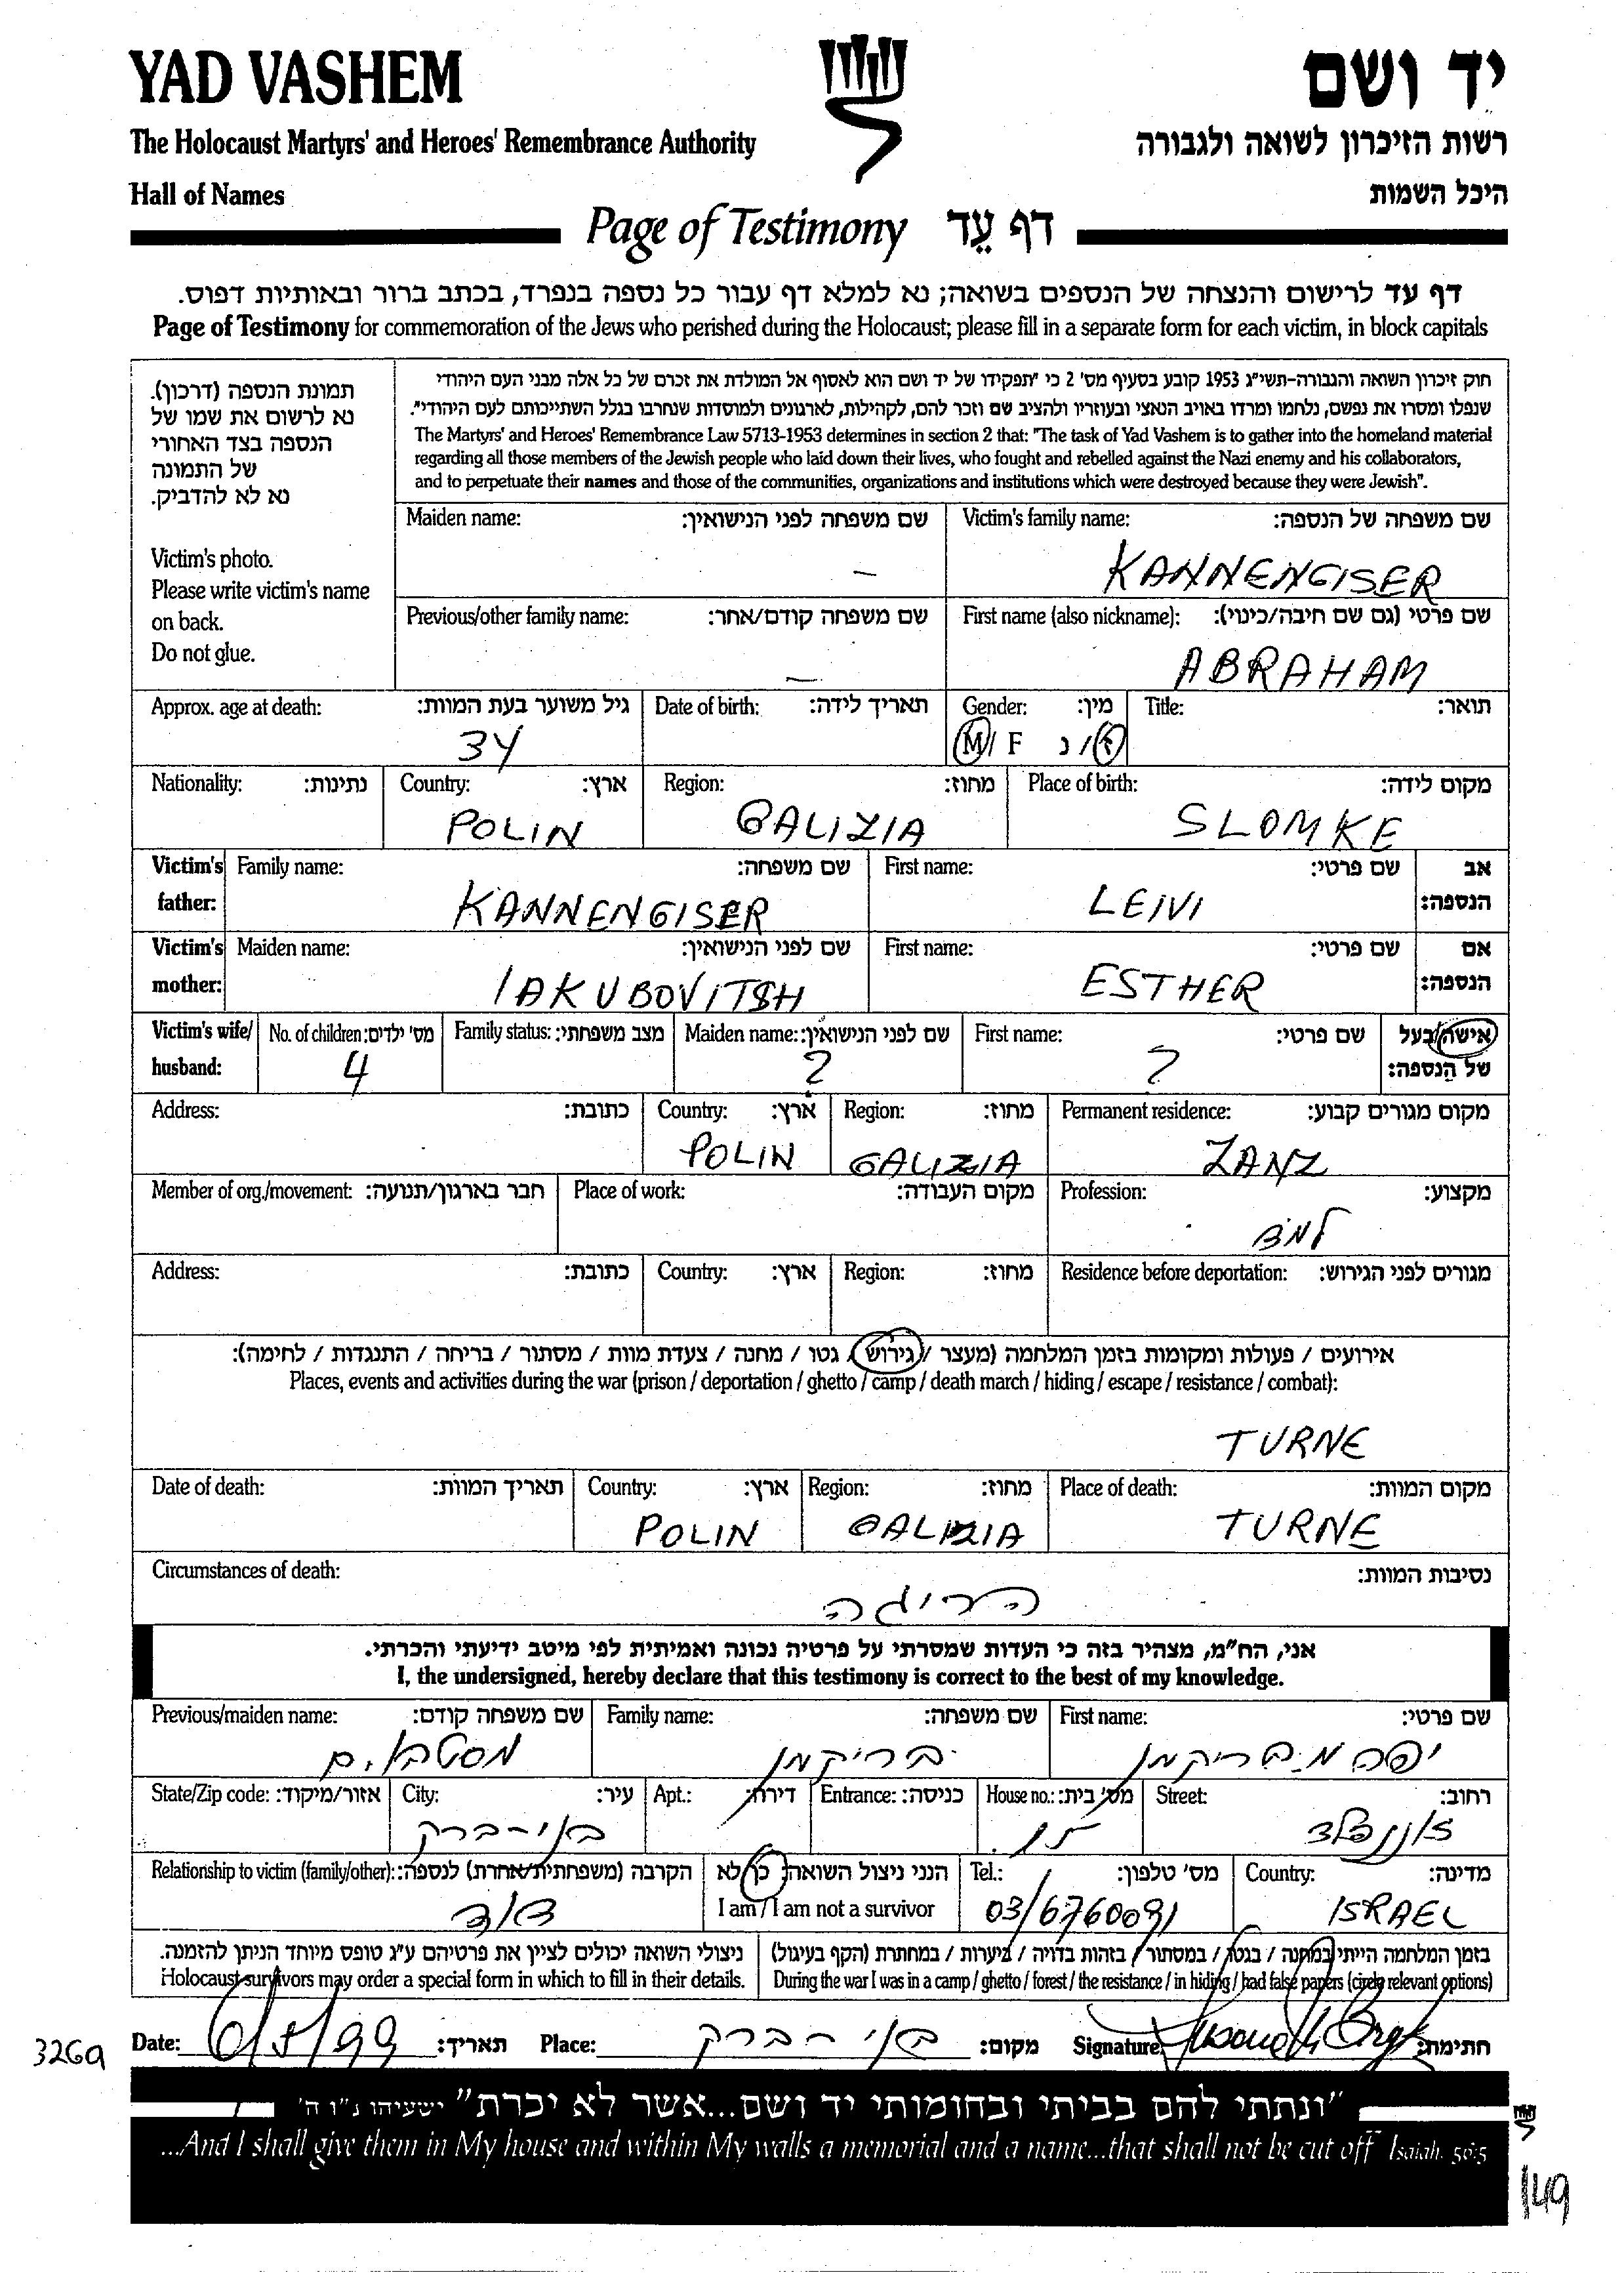 YAD VASHEM
יד ושם
The Holocaust Martyrs' and Heroes' Remembrance Authority
רשות הזיכרון לשואה ולגבורה
Hall of Names
היכל השמות
Page of Testimony דף עֵד
דף עד לרישום והנצחה של הנספים בשואה; נא למלא דף עבור כל נספה בנפרד, בכתב ברור ובאותיות דפוס.
Page of Testimony for commemoration of the Jews who perished during the Holocaust; please fill in a separate form for each victim, in block capitals
תמונת הנספה (דרכון).
נא לרשום את שמו של
הנספה בצד האחורי
של התמונה
נא לא להדביק.
Victim's photo.
Please write victim's name
on back.
Do not glue.
חוק זיכרון השואה והגבורה-תשי"ג 1953 קובע בסעיף מס' 2 כי "תפקידו של יד ושם הוא לאסוף אל המולדת את זכרם של כל אלה מבני העם היהודי
שנפלו ומסרו את נפשם, נלחמו ומרדו באויב הנאצי ובעוזריו ולהציב שם וזכר להם, לקהילות, לארגונים ולמוסדות שנחרבו בגלל השתייכותם לעם היהודי".
The Martyrs' and Heroes' Remembrance Law 5713-1953 determines in section 2 that: "The task of Yad Vashem is to gather into the homeland material
regarding all those members of the Jewish people who laid down their lives, who fought and rebelled against the Nazi enemy and his collaborators,
and to perpetuate their names and those of the communities, organizations and institutions which were destroyed because they were Jewish".
Maiden name: שם משפחה לפני הנישואין: Victim's family name: שם משפחה של הנספה:
– KANNENGISER
Previous/other family name: שם משפחה קודם/אחר: First name (also nickname): שם פרטי (גם שם חיבה/כינוי):
– ABRAHAM
Approx. age at death: גיל משוער בעת המוות: Date of birth: תאריך לידה: Gender: מין: Title: תואר:
34 M/ F ז/ נ
Nationality: נתינות: Country: ארץ: Region: מחוז: Place of birth: מקום לידה:
POLIN GALIZIA SLOMKE
Victim's father: Family name: שם משפחה: First name: שם פרטי: אב הנספה:
KANNENGISER LEIVI
Victim's mother: Maiden name: שם לפני הנישואין: First name: שם פרטי: אם הנספה:
IAKUBOVITSH ESTHER
Victim's wife/ husband: No. of children: מס' ילדים: Family status: מצב משפחתי: Maiden name: שם לפני הנישואין: First name: שם פרטי: אישה/בעל של הנספה:
4 ? ?
Address: כתובת: Country: ארץ: Region: מחוז: Permanent residence: מקום מגורים קבוע:
POLIN GALIZIA ZANZ
Member of org./movement: חבר בארגון/תנועה: Place of work: מקום העבודה: Profession: מקצוע:
Address: כתובת: Country: ארץ: Region: מחוז: Residence before deportation: מגורים לפני הגירוש:
אירועים / פעולות ומקומות בזמן המלחמה (מעצר / גירוש / גטו / מחנה / צעדת מוות / מסתור / בריחה / התנגדות / לחימה):
Places, events and activities during the war (prison / deportation / ghetto / camp / death march / hiding / escape / resistance / combat):
TURNE
Date of death: תאריך המוות: Country: ארץ: Region: מחוז: Place of death: מקום המוות:
POLIN GALIZIA TURNE
Circumstances of death: נסיבות המוות:
הרוגה
אני, הח"מ, מצהיר בזה כי העדות שמסרתי על פרטיה נכונה ואמיתית לפי מיטב ידיעתי והכרתי.
I, the undersigned, hereby declare that this testimony is correct to the best of my knowledge.
Previous/maiden name: שם משפחה קודם: Family name: שם משפחה: First name: שם פרטי:
בריקמן יפה מ. בריקמן
State/Zip code: אזור/מיקוד: City: עיר: Apt.: דירה: Entrance: כניסה: House no.: מס' בית: Street: רחוב:
בני-ברק 15
Relationship to victim (family/other): הקרבה (משפחתית/אחרת) לנספה: הנני ניצול השואה: כן/לא Tel.: מס' טלפון: Country: מדינה:
דוד I am / I am not a survivor 03/6760091 ISRAEL
ניצולי השואה יכולים לציין את פרטיהם ע"ג טופס מיוחד הניתן להזמנה. בזמן המלחמה הייתי במחנה / בגטו / במסתור / בזהות בדויה / ביערות / במחתרת (הקף בעיגול)
Holocaust survivors may order a special form in which to fill in their details. During the war I was in a camp / ghetto / forest / the resistance / in hiding / had false papers (circle relevant options)
3269 Date: 6/5/99 תאריך: Place: בני-ברק מקום: Signature: חתימת:
"ונתתי להם בביתי ובחומותי יד ושם...אשר לא יכרת" ישעיהו נ"ו ה'
...And I shall give them in My house and within My walls a memorial and a name...that shall not be cut off Isaiah. 56:5
149